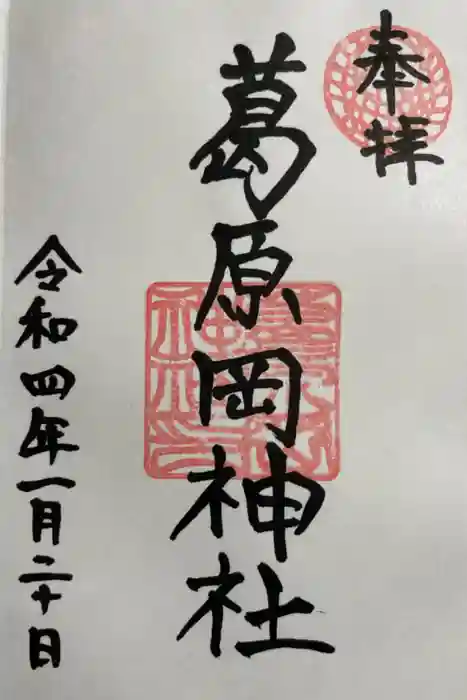 奉拝
葛原岡神社
令和四年一月二十日